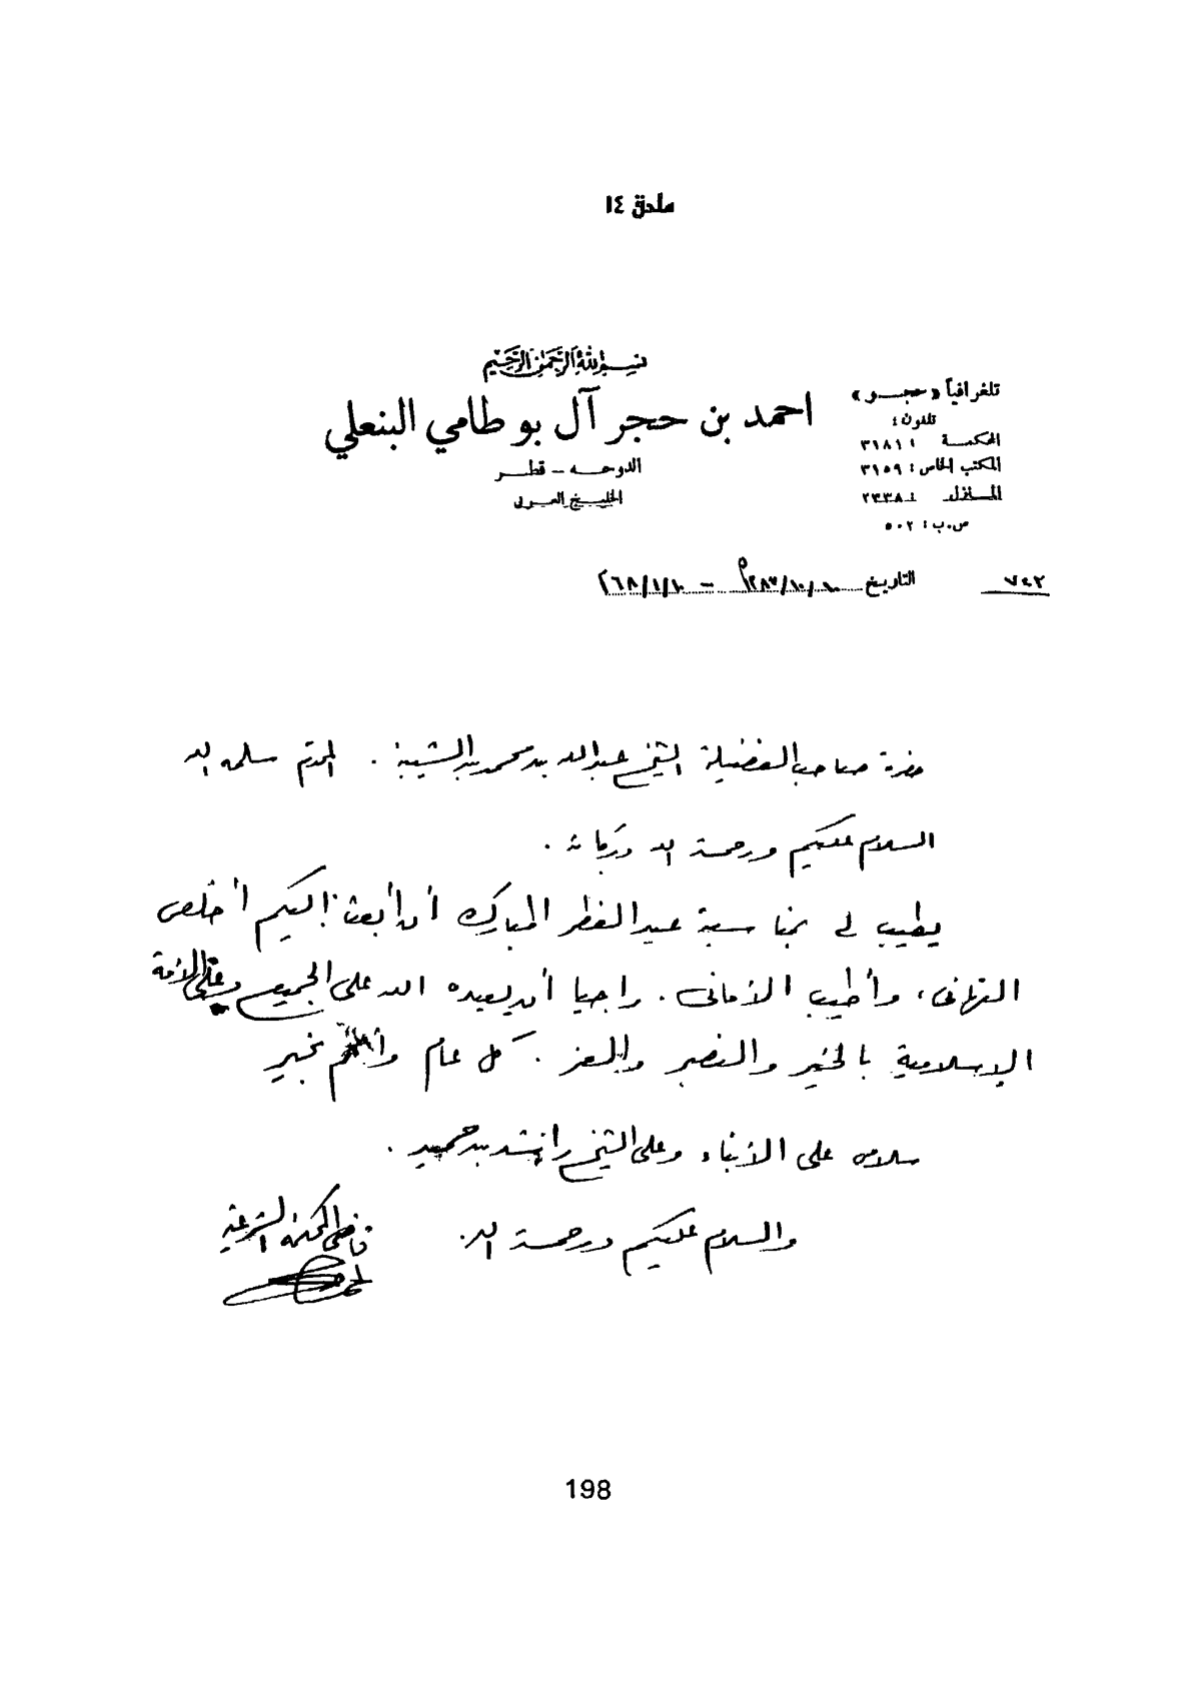 ملحق ١٤
بسم الله الرحمن الرحيم
احمد بن حجر آل بو طامي البنعلي
الدوحه - قطر
الخليج العربي
تلغرافياً «حجر»
تلفون :
المحكمة : ٣١٨١
المكتب الخاص : ٣١٥٩
المنزل : ٢٣٣٨
ص.ب : ٥٠٢
٧٤٢
التاريخ ١٠/١٠/١٣٨٧هـ - ١٠/١/٦٨م
حضرة صاحب الفضيلة الشيخ عبدالله بن محمد بن الشيبة . المحترم سلمه الله
السلام عليكم ورحمة الله وبركاته .
يطيب لي بمناسبة عيد الفطر المبارك أن أبعث إليكم أخلص
التهاني، وأطيب الأماني . راجيا أن يعيده الله على الجميع وعلى الأمة
الإسلامية بالخير والنصر والعز . كل عام وأنتم بخير
سلامي على الأبناء وعلى الشيخ راشد بن حميد .
والسلام عليكم ورحمة الله .
قاضي المحكمة الشرعية
198